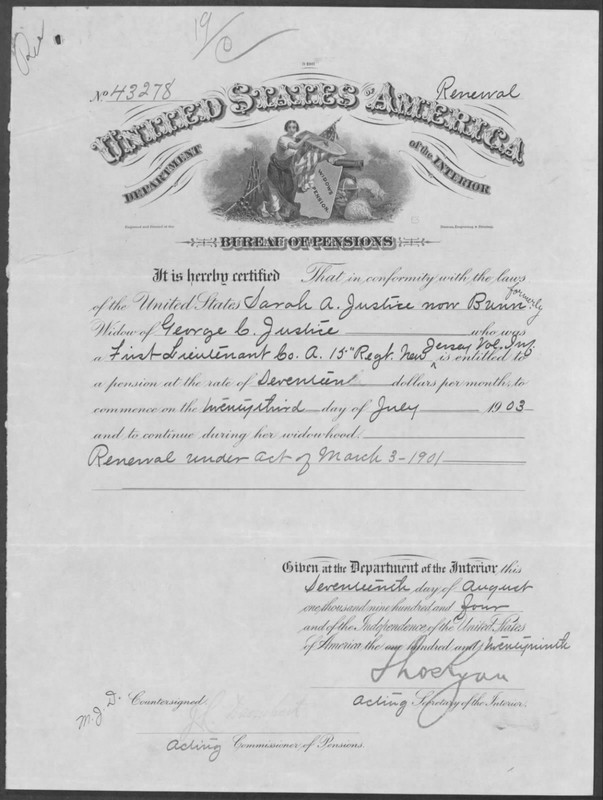 19
C
No 43278
Renewal
UNITED STATES OF AMERICA
DEPARTMENT of the INTERIOR
WIDOWS PENSION
BUREAU OF PENSIONS
It is hereby certified That in conformity with the laws
of the United States Sarah A. Justice now Bunn formerly
Widow of George C. Justice who was
a First Lieutenant Co. A. 15" Regt. New Jersey Vol. Inf. is entitled to
a pension at the rate of Seventeen dollars per month, to
commence on the twentythird day of July 1903
and to continue during her widowhood.
Renewal under act of March 3-1901
Given at the Department of the Interior this
Seventeenth day of August
one thousand nine hundred and four
and of the Independence of the United States
of America the one hundred and twentyninth
Thos Ryan
Acting Secretary of the Interior.
M.J.D. Countersigned
Acting Commissioner of Pensions.